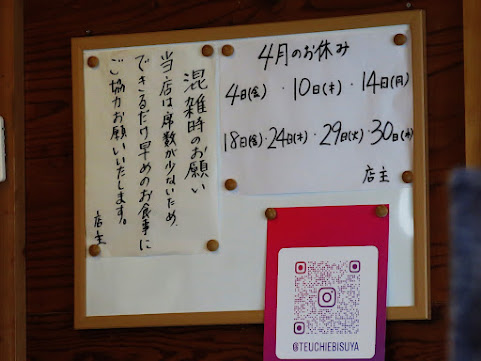 混雑時のお願い
当店は席数が少ないため、
できるだけ早めのお食事に
ご協力お願いいたします。
店主
4月のお休み
4日(金)・10日(木)・14日(月)
18日(金)・24日(木)・29日(火)・30日(水)
店主
@TEUCHIEBISUYA